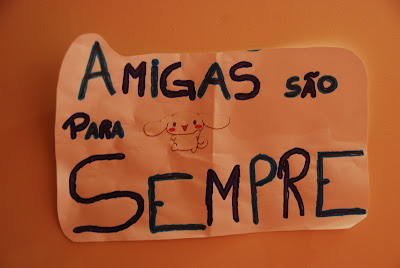 AMIGAS SÃO
PARA
SEMPRE